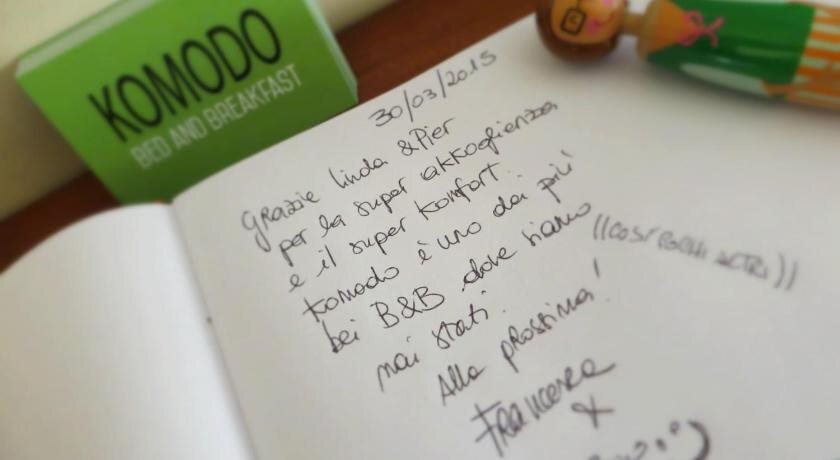 KOMODO
BED AND BREAKFAST
30/03/2015
Grazie Linda & Pier
per la super akkoglienza
e il super komfort.
Komodo è uno dei più
bei B&B dove siamo
mai stati.
Alla prossima!
Francesca
x